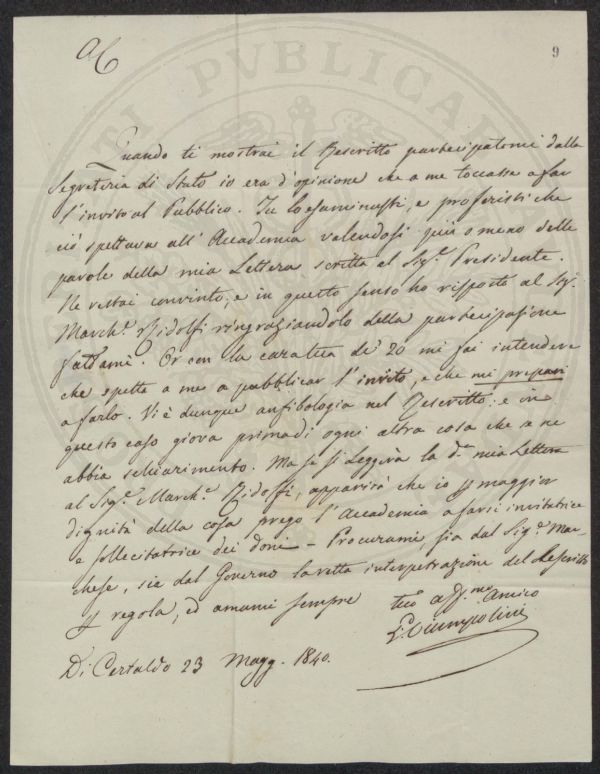 AC
9
Quando ti mostrai il Rescritto partecipatomi dalla
Segreteria di Stato io era d'opinione che a me toccasse a far
l'invito al Pubblico. Tu lo esaminasti, e proferisti che
ciò spettava all'Accademia valendosi più o meno delle
parole della mia Lettera scritta al Sigr. Presidente.
Ne restai convinto, e in questo senso ho risposto al Sigr.
March.e Ridolfi ringraziandolo della partecipazione
fattami. Or con la cara tua de' 20 mi fai intendere
che spetta a me a pubblicar l'invito, e che mi prepari
a farlo. Vi è dunque anfibologia nel Rescritto; e in
questo caso giova prima di ogni altra cosa che se ne
abbia schiarimento. Ma se si leggerà la d.a mia Lettera
al Sigr. March.e Ridolfi, apparirà che io p maggior
dignità della cosa prego l'Accademia a farsi invitatrice
e sollecitatrice dei doni - Procurami sia dal Sigr. Mar-
chese, sia dal Governo la retta interpetrazione del Rescritto
p regola, ed amami sempre
tuo aff.mo Amico
Ciampolini
Di Certaldo 23 Magg. 1840.
PVBLICAE